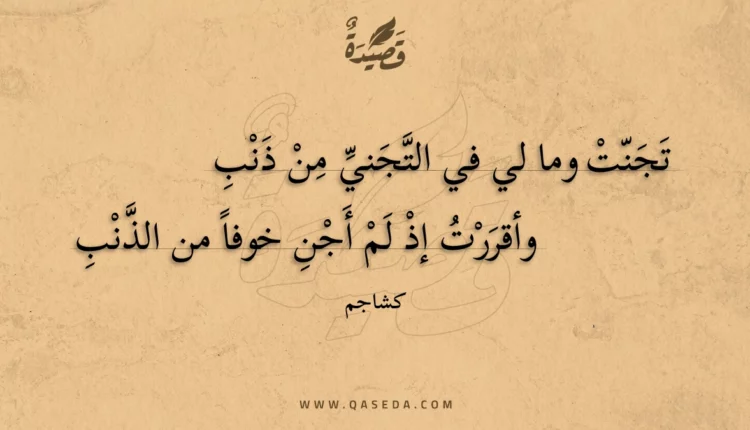 قَصِيْدَةٌ
تَجَنّتْ وما لي في التَّجَنيِّ مِنْ ذَنْبِ
وأقرَرْتُ إذْ لَمْ أَجْنِ خوفاً من الذَّنْبِ
كشاجم
WWW.QASEDA.COM